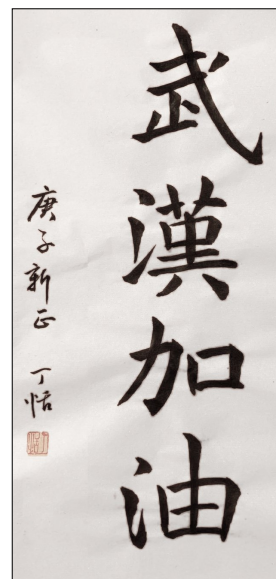 武漢加油
庚子新正 丁恬